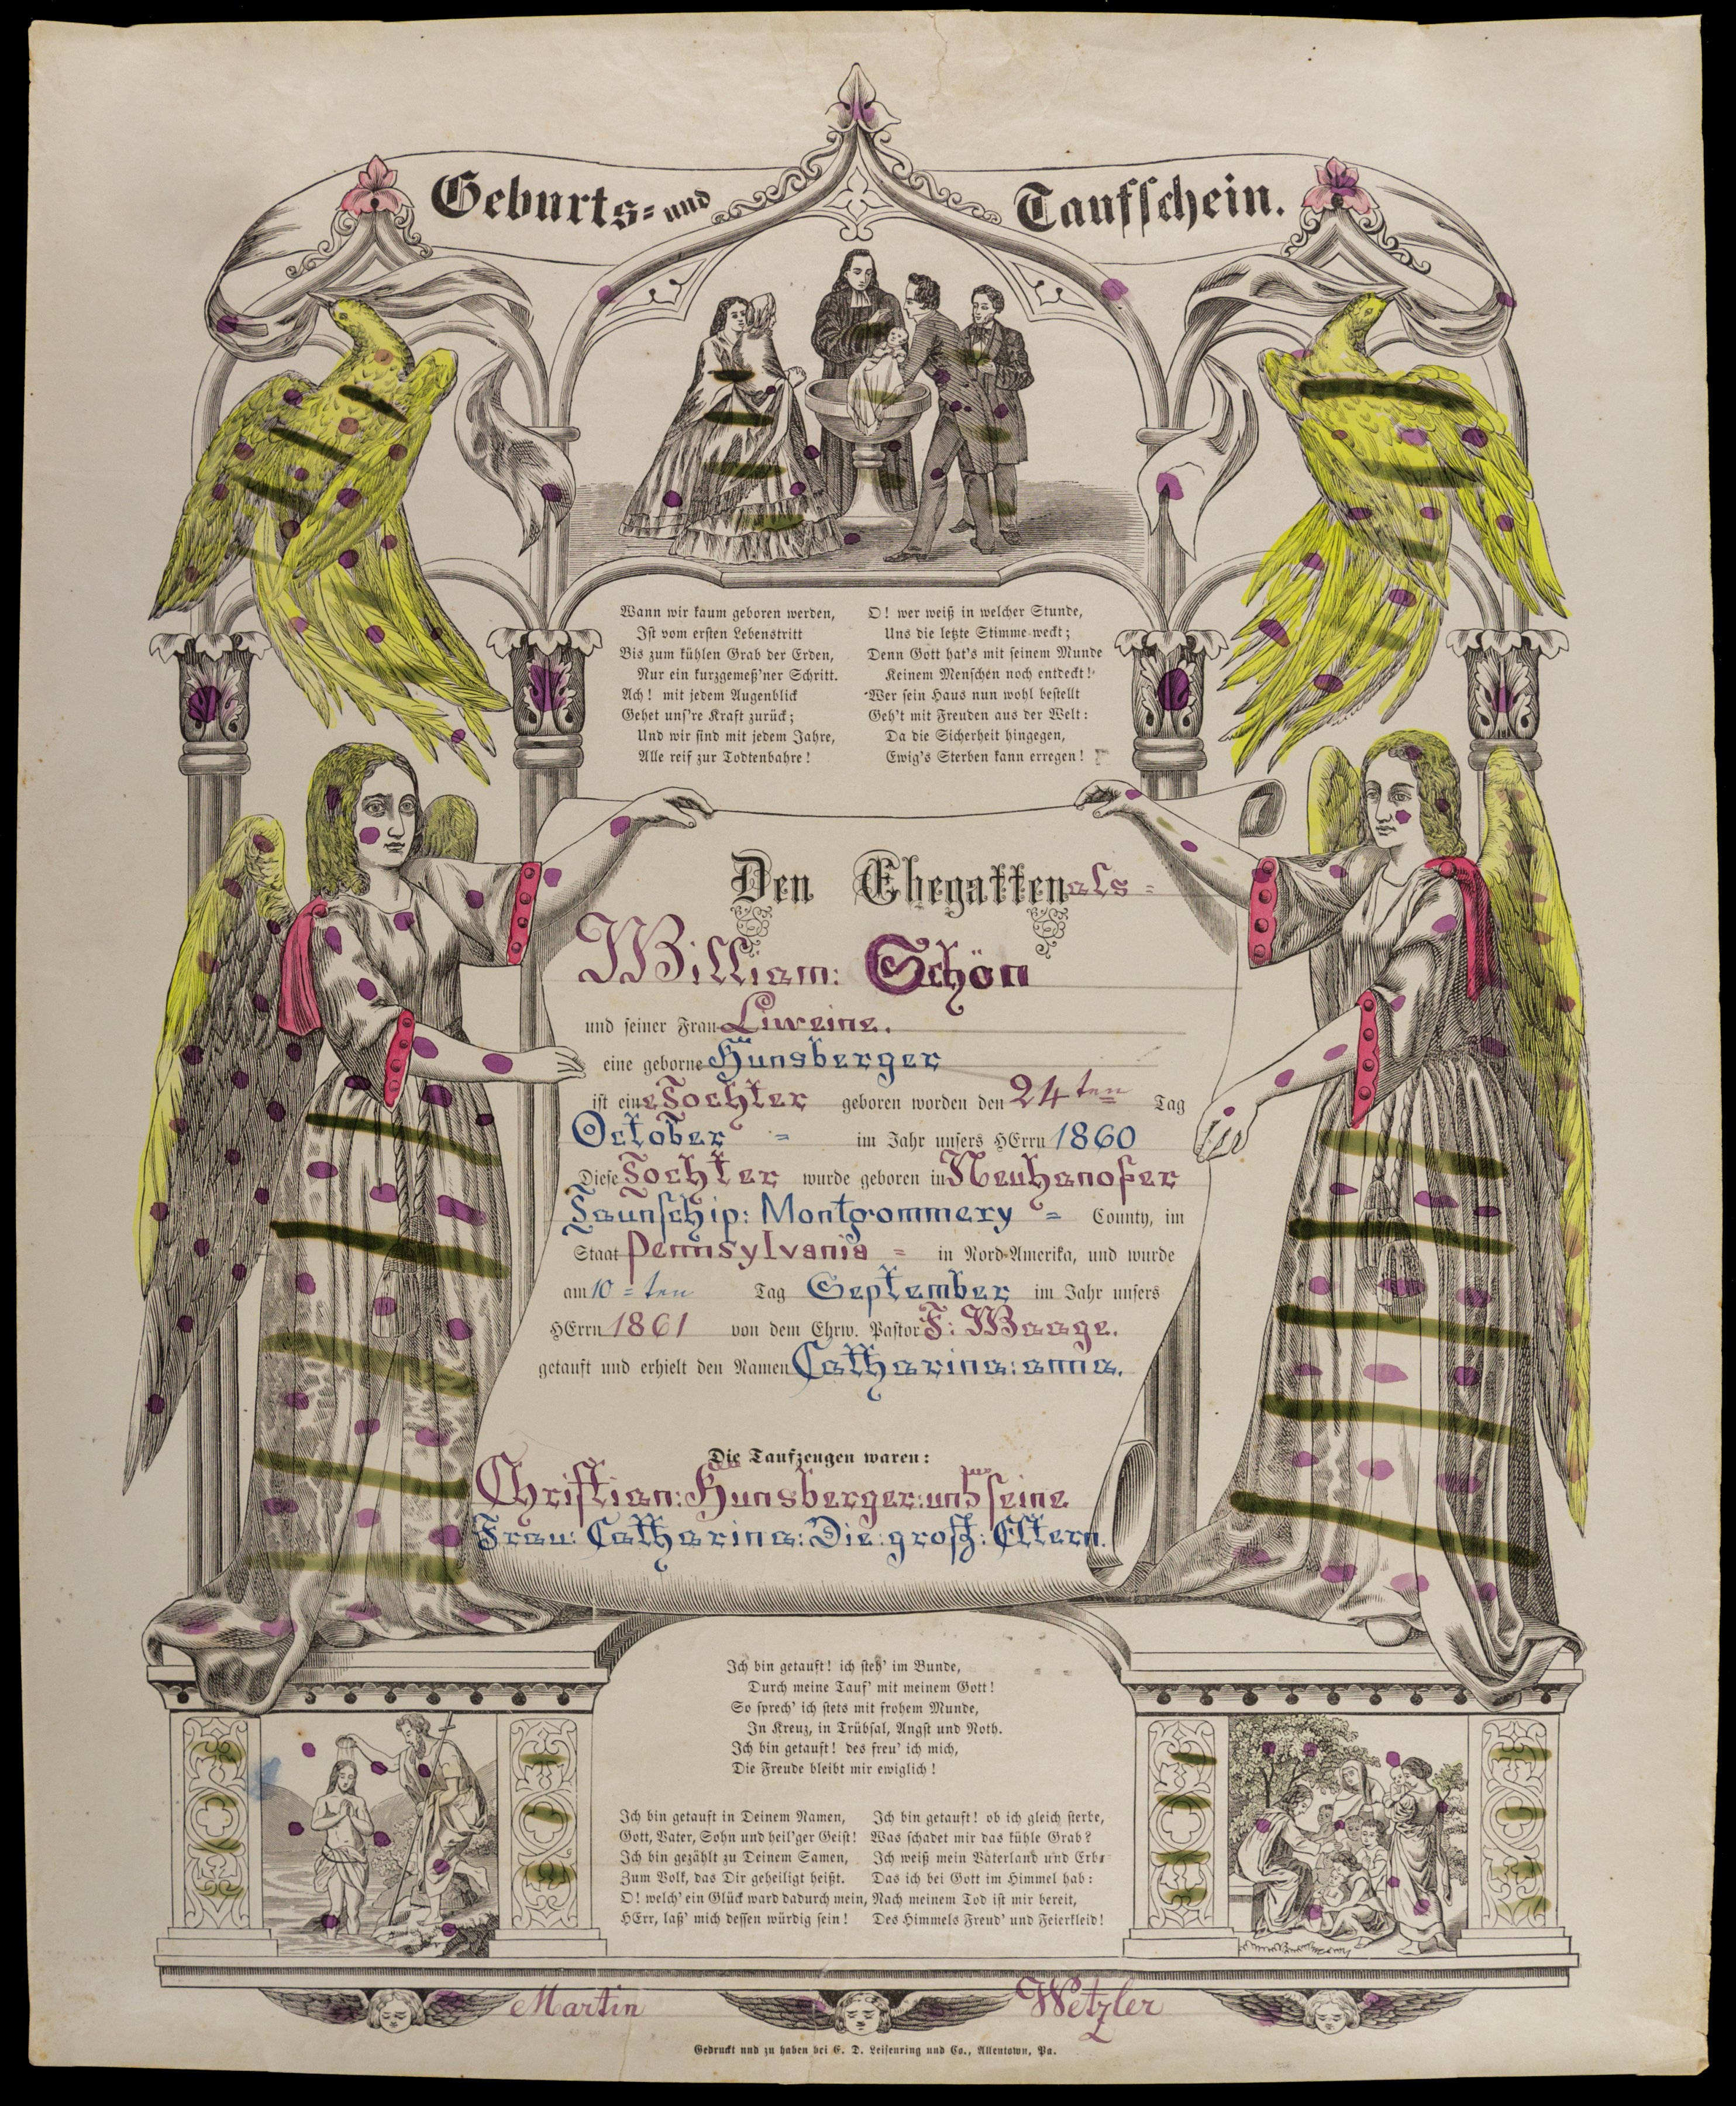 Geburts= und Taufschein.
Wann wir kaum geboren werden,
Ist vom ersten Lebenstritt
Bis zum kühlen Grab der Erden,
Nur ein kurzgemeß'ner Schritt.
Ach! mit jedem Augenblick
Gehet uns're Kraft zurück;
Und wir sind mit jedem Jahre,
Alle reif zur Todtenbahre!
O! wer weiß in welcher Stunde,
Uns die letzte Stimme weckt;
Denn Gott hat's mit seinem Munde
Keinem Menschen noch entdeckt!
Wer sein Haus nun wohl bestellt
Geh't mit Freuden aus der Welt:
Da die Sicherheit hingegen,
Ewig's Sterben kann erregen!
Den Ehegatten als =
William: Schön
und seiner Frau Luweine.
eine geborne Hunsberger
ist eine Tochter geboren worden den 24ten Tag
October = im Jahr unsers HErrn 1860
Diese Tochter wurde geboren in Neuhanofer
Taunschip: Montgommery = County, im
Staat Pennsylvania = in Nord-Amerika, und wurde
am 10=ten Tag September im Jahr unsers
HErrn 1861 von dem Ehrw. Pastor F: Waage.
getauft und erhielt den Namen Catharina: anna.
Die Taufzeugen waren:
Christian: Hunsberger: und seine
Frau: Catharina: Die: groß: Eltern.
Ich bin getauft! ich steh' im Bunde,
Durch meine Tauf' mit meinem Gott!
So sprech' ich stets mit frohem Munde,
In Kreuz, in Trübsal, Angst und Noth.
Ich bin getauft! des freu' ich mich,
Die Freude bleibt mir ewiglich!
Ich bin getauft in Deinem Namen,
Gott, Vater, Sohn und heil'ger Geist!
Ich bin gezählt zu Deinem Samen,
Zum Volk, das Dir geheiligt heißt.
O! welch' ein Glück ward dadurch mein,
HErr, laß' mich dessen würdig sein!
Ich bin getauft! ob ich gleich sterbe,
Was schadet mir das kühle Grab?
Ich weiß mein Vaterland und Erbe
Das ich bei Gott im Himmel hab:
Nach meinem Tod ist mir bereit,
Des Himmels Freud' und Feierkleid!
Martin Wetzler
Gedruckt und zu haben bei E. D. Leisenring und Co., Allentown, Pa.